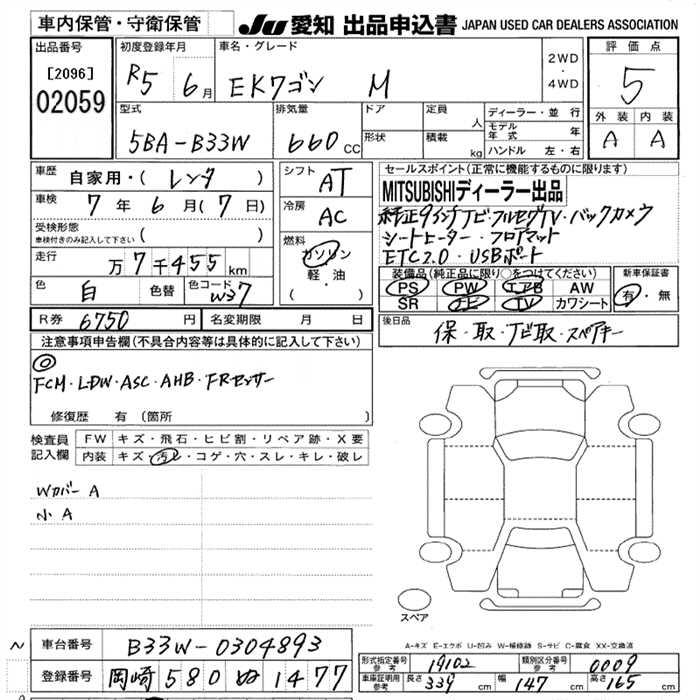 車内保管・守衛保管
JU 愛知 出品申込書 JAPAN USED CAR DEALERS ASSOCIATION
出品番号
[2096]
02059
初度登録年月
R5 6月
車名・グレード
EKワゴン M
2WD
・
4WD
評価点
5
外装 内装
A A
型式
5BA-B33W
排気量
660 CC
ドア
形状
定員 人
積載 kg
ディーラー・並行
モデル年式 年
ハンドル 左・右
車歴
自家用・( レンタ )
車検
7年 6月(7日)
受検形態
車検付きのみ記入して下さい ( )
走行
万7千455km
色
白
色替
色コード
W37
シフト
AT
冷房
AC
燃料
ガソリン
軽・油
( )
セールスポイント(正常に機能するものに限ります)
MITSUBISHIディーラー出品
純正9インチナビ・フルセグTV・バックカメラ
シートヒーター・フロアマット
ETC2.0・USBポート
装備品(純正品に限り○をつけてください)
PS PW エアB AW
SR ナビ TV カワシート
新車保証書
有・無
R券 6750円
名変期限 月 日
後日品
保・取・ナビ取・スペアキー
注意事項申告欄(不具合内容等は具体的に記入して下さい)
◎
FCM・LDW・ASC・AHB・FRセンサー
修復歴 有(箇所
検査員
記入欄
FW キズ・飛石・ヒビ割・リペア跡・X要
内装 キズ・汚レ・コゲ・穴・スレ・キレ・破レ
Wカバー A
小 A
スペア
A-キズ E-エクボ U-凹み W-補修跡 S-サビ C-腐食 XX-交換済
車台番号 B33W-0304893
登録番号 岡崎 580 ぬ 1477
形式指定番号 参考 19102
類別区分番号 参考 0009
車庫証明用 参考 長さ 339cm 幅 147cm 高さ 165cm